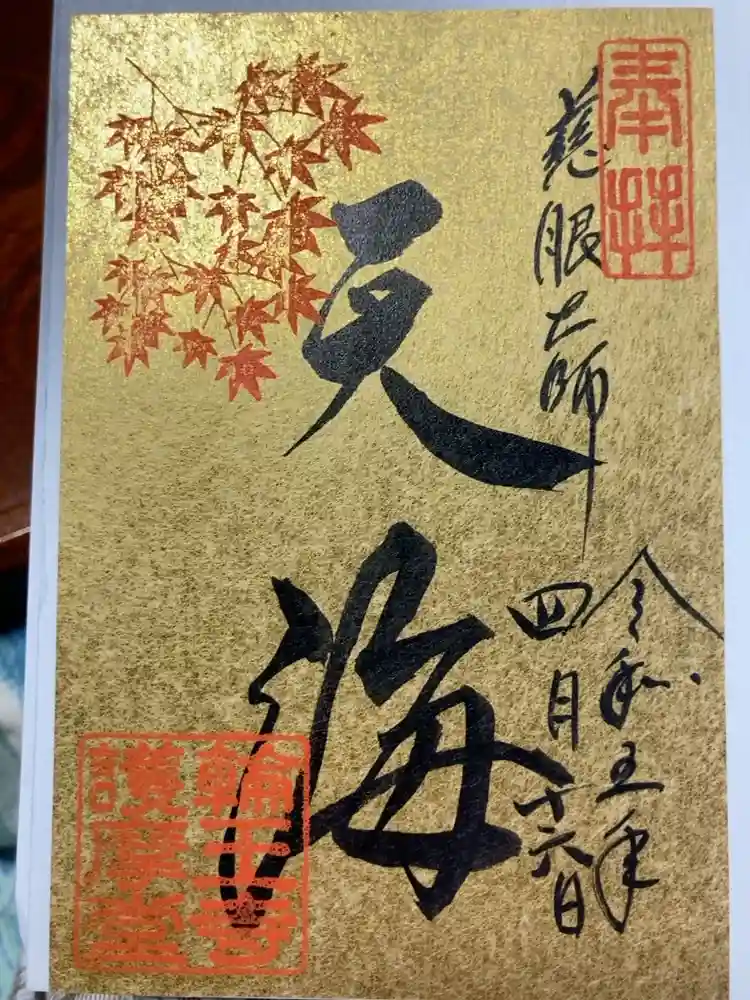 奉拝
慈眼大師
令和五年
四月十六日
天海
輪王寺
護摩堂